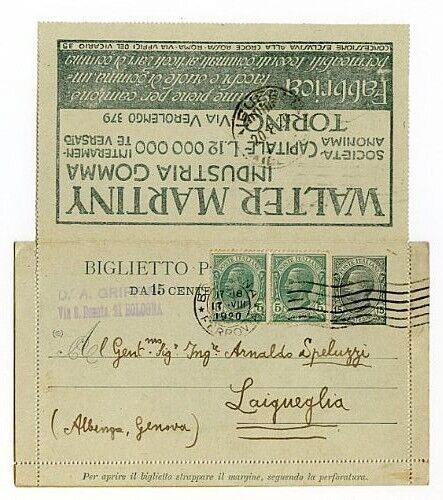 WALTER MARTINY
INDUSTRIA GOMMA
SOCIETÀ
ANONIMA
CAPITALE L.12 000 000
INTERAMEN-
TE VERSATO
TORINO
VIA VEROLENGO 379
Fabbrica
gomme piene per camions
tacchi e suole di gomma
CONCESSIONE ESCLUSIVA ALLA CROCE ROSSA - ROMA - VIA UFFICI DEL VICARIO 35
BIGLIETTO P
DA 15 CENTE
POSTE ITALIANE
POSTE ITALIANE
POSTE ITALIANE
5 5
5 5
15 15
17 VIII
1920
FERROV
Via S. Donato 21 BOLOGNA
Al Gent.mo Sig. Ing.re Arnaldo Speluzzi
Laigueglia
(Albenga, Genova)
Per aprire il biglietto strappare il margine, seguendo la perforatura.